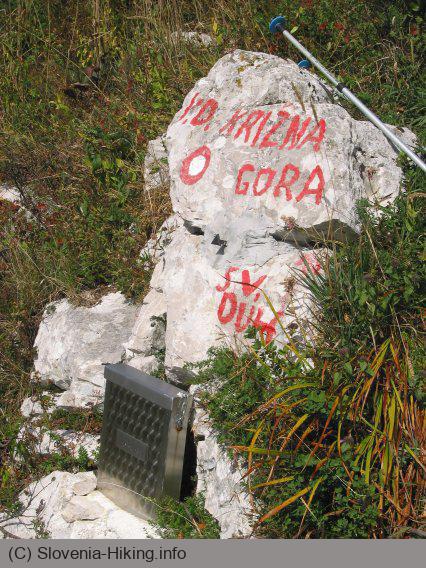 KRIŽNA
GORA
SV
DUH
(C) Slovenia-Hiking.info